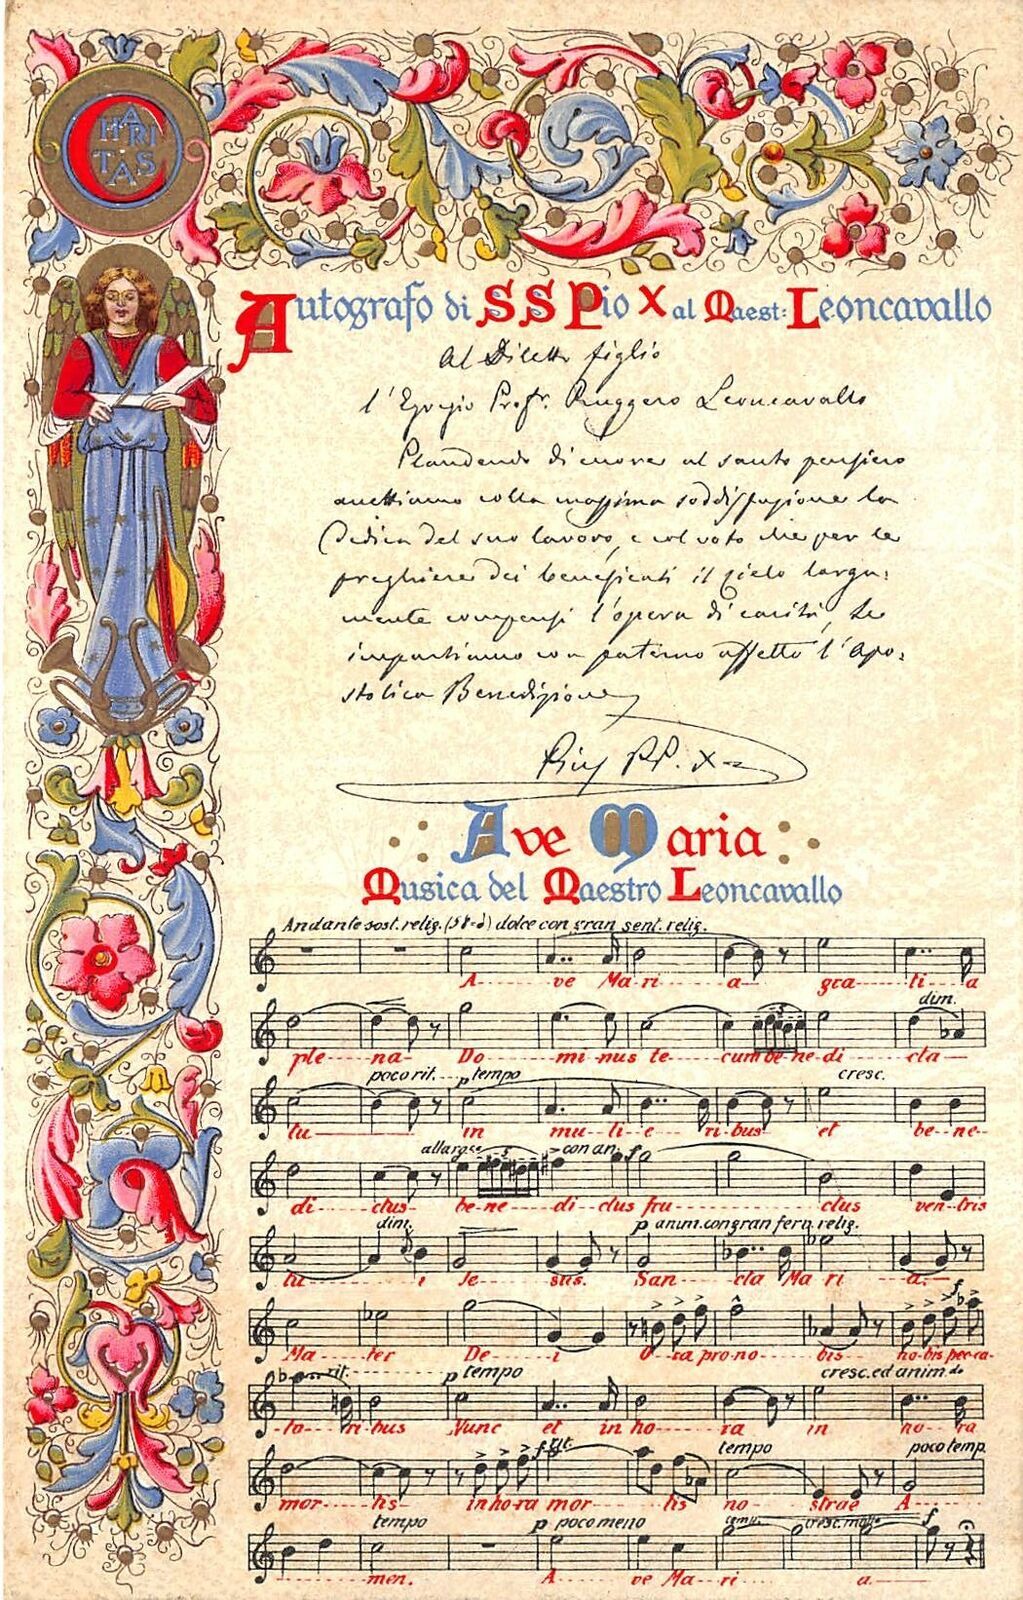 CHARITAS
Autografo di SS Pio X al Maest: Leoncavallo
Al Diletto figlio
l'Egregio Profr. Ruggero Leoncavallo
Plaudendo di cuore al santo pensiero
accettiamo colla massima soddisfazione la
Dedica del suo lavoro, e col voto che per le
preghiere dei beneficati il Cielo larga:
mente compensi l'opera di carità, Le
impartiamo con paterno affetto l'Apo:
stolica Benedizione
Pius PP. X
Ave Maria
Musica del Maestro Leoncavallo
Andante sost. relig. (58=) dolce con gran sent. relig.
A ve Ma-ri a gra ti a
dim.
ple na Do mi-nus te cum be-ne-di cta
poco rit. p tempo cresc.
tu in mu-li-e ri-bus et be-ne-
allarg con an. f
di ctus be-ne di-ctus fru ctus ven-tris
dim. p anim. con gran ferv. relig.
tu i Je sus. San cta Ma ri a.
f
Ma ter De i O ra pro-no bis no-bis pec-ca-
rit. p tempo cresc. ed anim.do
to ri-bus Nunc et in ho ra in ho ra
f rit. tempo poco temp.
mor tis in ho-ra mor tis no strae A
tempo p poco meno cresc. molto f
men. A ve Ma ri a